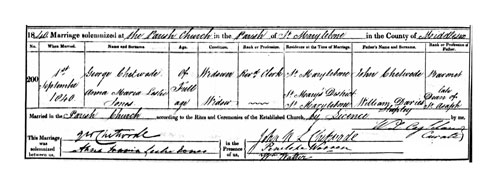 1840 Marriage solemnized at the Parish Church in the Parish of St Marylebone in the County of Middlesex
No. When Married. Name and Surname. Age. Condition. Rank or Profession. Residence at the Time of Marriage. Father's Name and Surname. Rank or Profession of Father.
200 1st September 1840. George Chetwode Of Full age Widower Revd Clerk St Marylebone John Chetwode Baronet
Anna Maria Leslie Jones Widow St Mary's District St Marylebone William Davies Shipley late Dean of St Asaph
Married in the Parish Church according to the Rites and Ceremonies of the Established Church, by Licence by me,
Curate
This Marriage was solemnized between us,
Geo Chetwode
Anna Maria Leslie Jones
in the Presence of us,
John Chetwode